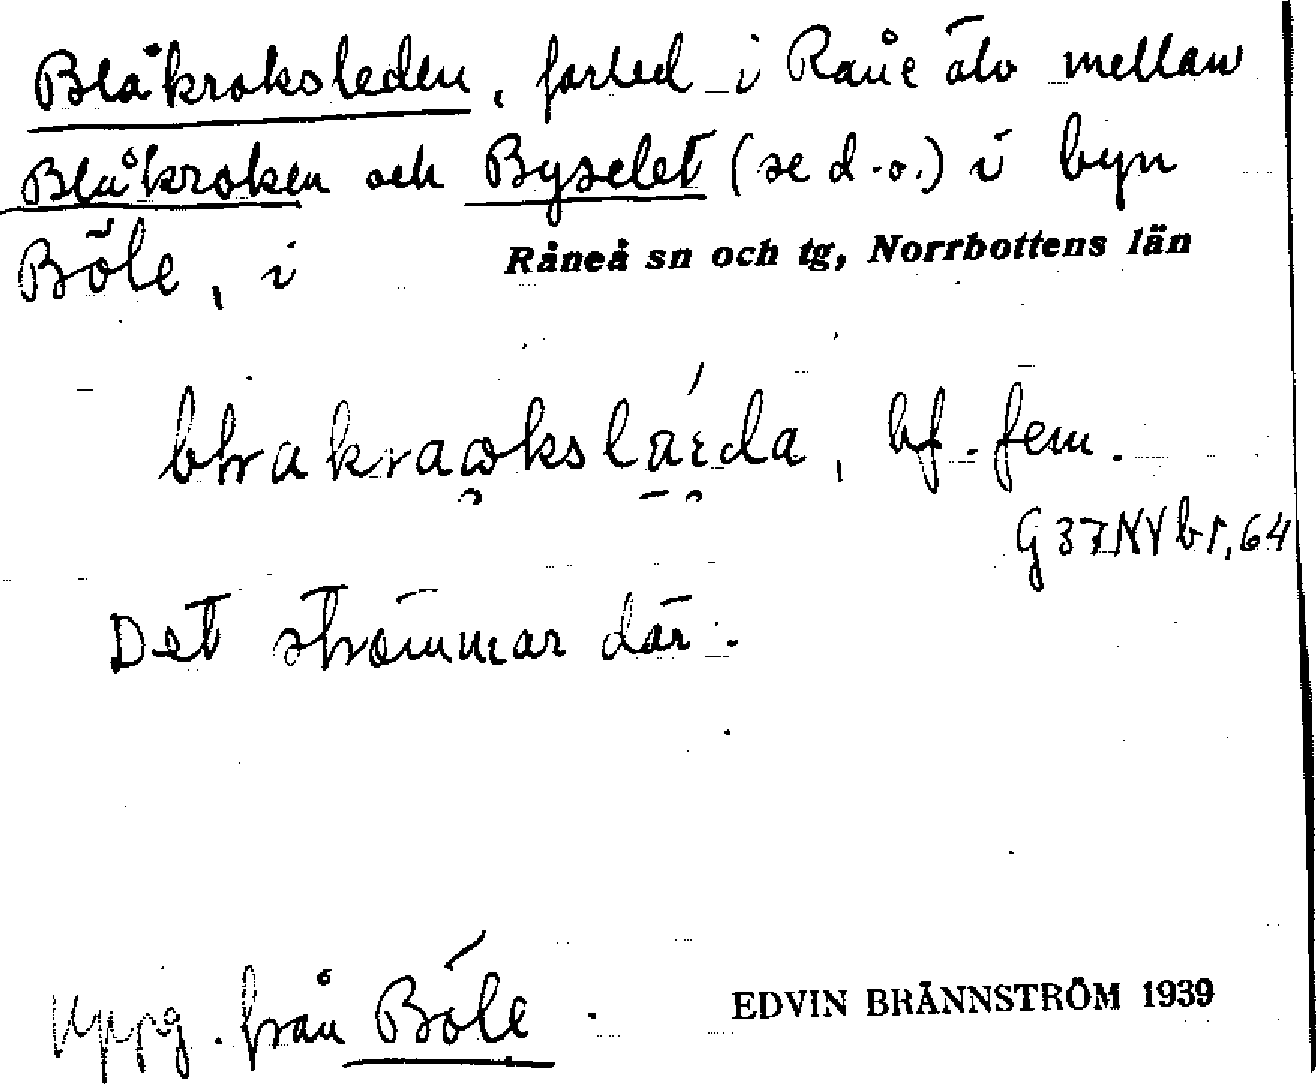 Blåkroksleden, farled i Råne älv mellan
Blåkroken och Byselet (se d.o.) i byn
Böle, i Råneå sn och tg, Norrbottens län
bf. fem.
G 37 NV br, 64
Det strömmar där.
Uppg. från Böle. EDVIN BRÄNNSTRÖM 1939